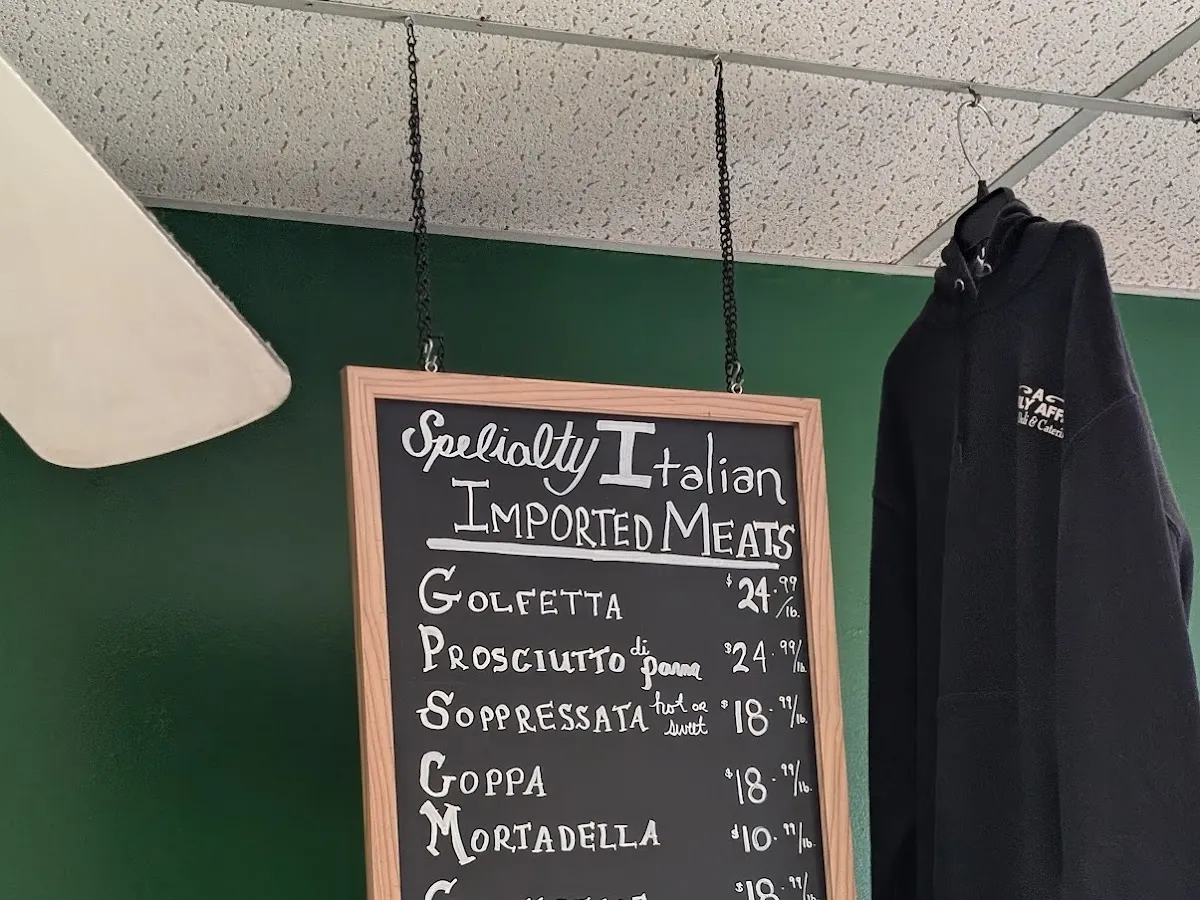 Spelialty Italian
IMPORTED MEATS
GOLFETTA $24.99/lb.
PROSCIUTTO di parma $24.99/lb.
SOPPRESSATA hot or sweet $18.99/lb.
GOPPA $18.99/lb.
MORTADELLA $10.99/lb.
$18.99/
A
LY AFF
& Cateri